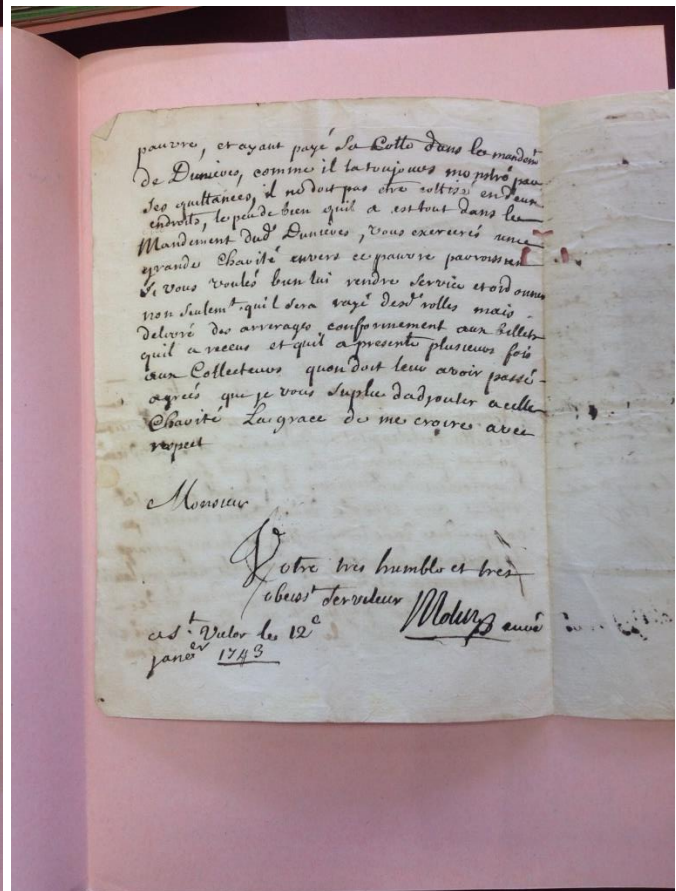 pauvre, et ayant payé sa Cotte dans le mandemt
de Dunieres, comme il la toujours montré par
ses quittances, il ne doit pas etre cottisé en deux
endroits, le peu de bien quil a est tout dans le
Mandement dudt Dunieres, vous exercerés une
grande Charité envers ce pauvre parroissien
si vous voulés bien lui rendre service et ordonner
non seulemt quil sera rayé desdt rolles mais
delivré des arrerages conformement aux billets
quil a recus et quil a presenté plusieurs fois
aux Collecteurs quon doit leur avoir passé
agreés que je vous suplie dadjouter a cette
Charité La grace de me croire avec
respect
Monsieur
Votre tres humble et tres
obeisst serviteur
curé
a st. Victor le 12e
janer 1743